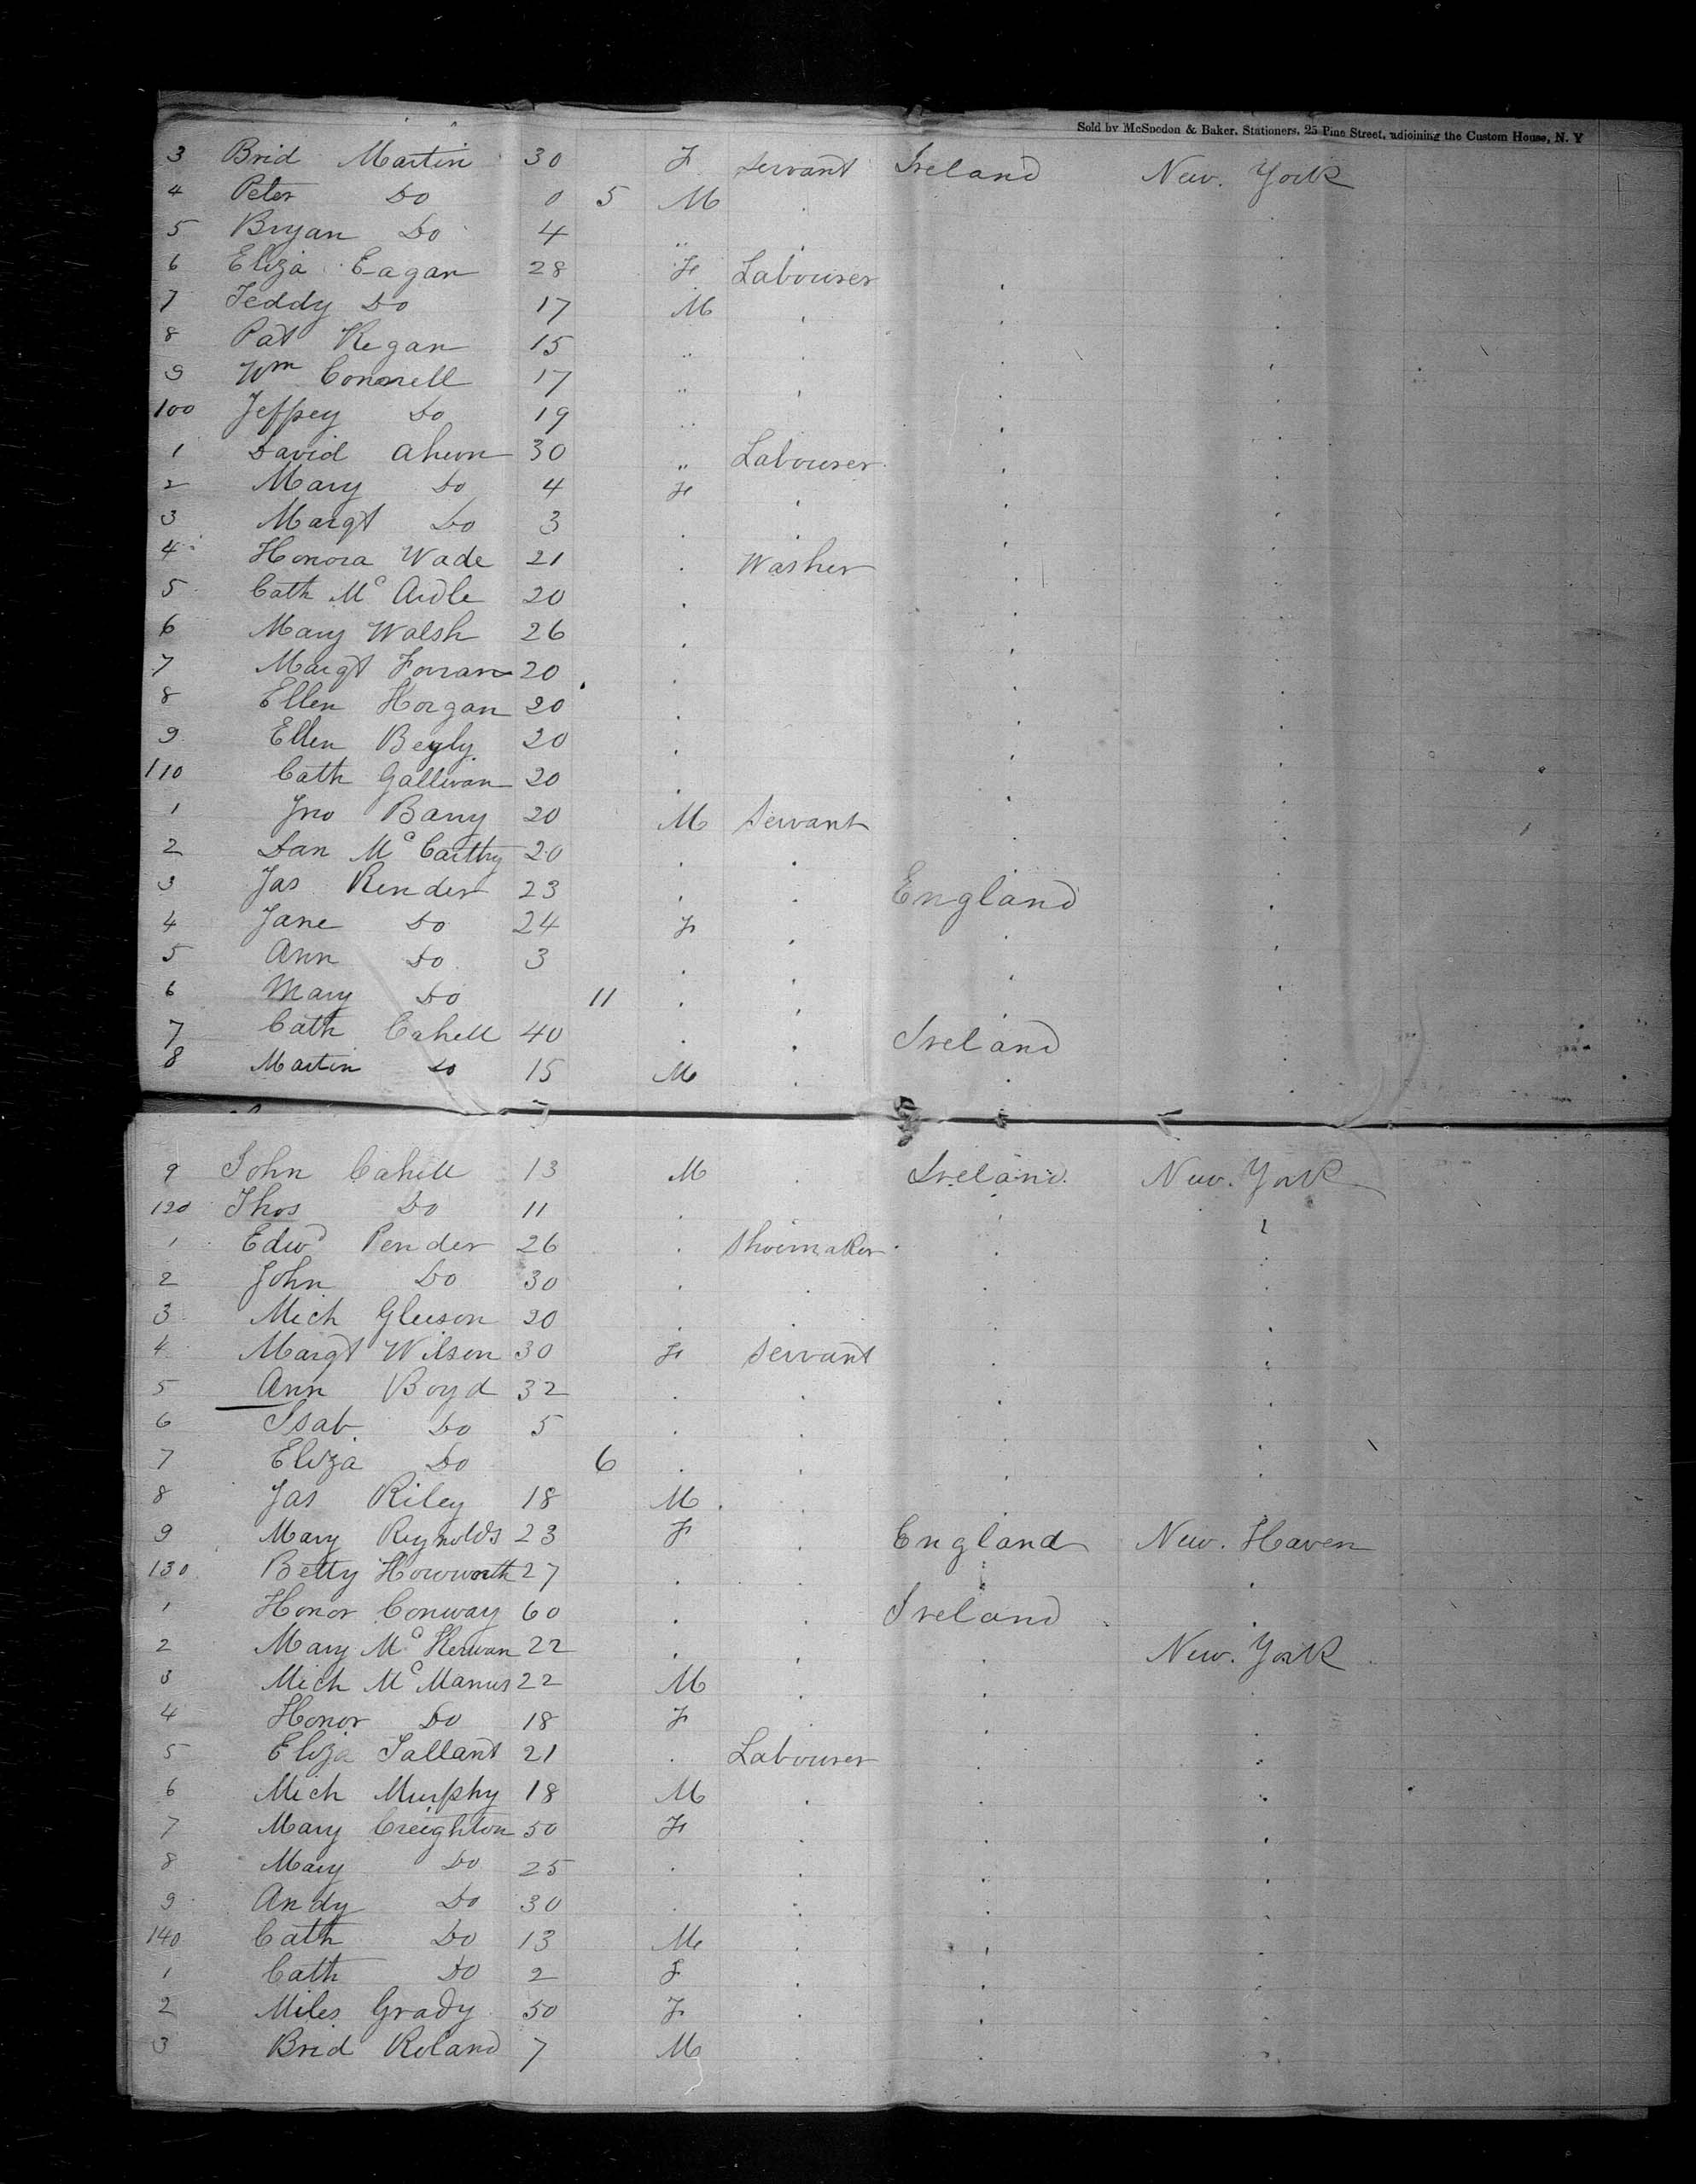 Sold by McSpedon & Baker, Stationers, 25 Pine Street, adjoining the Custom House, N. Y
3 Brid Martin 30 F servant Ireland New. York
4 Peter Do 0 5 M .
5 Bryan Do 4 " .
6 Eliza Eagan 28 F Labourer .
7 Teddy Do 17 M . .
8 Pat Kegan 15 " . .
9 Wm Connell 17 " . .
100 Jeffrey Do 19 " . .
1 David Ahern 30 " Labourer . .
2 Mary Do 4 F . . .
3 Margt Do 3 . . . .
4 Honora Wade 21 . Washer . .
5 Cath Mc Ardle 20 . . .
6 Mary Walsh 26 . . .
7 Margt Forran 20 . . .
8 Ellen Horgan 20 . . .
9 Ellen Begly 20 . . .
110 Cath Gallivan 20 . . .
1 Jno Barry 20 M Servant . .
2 Dan Mc Carthy 20 . . . .
3 Jas Render 23 . . England .
4 Jane Do 24 F . . .
5 Ann Do 3 . . . .
6 Mary Do 11 . . .
7 Cath Cahell 40 . . Ireland .
8 Martin Do 15 M . . .
9 John Cahell 13 M . Ireland New. York
120 Thos Do 11 . . .
1 Edwd Pender 26 . Shoemaker . .
2 John Do 30 . . . .
3 Mich Gleeson 20 . . . .
4 Margt Wilson 30 F Servant . .
5 Ann Boyd 32 . . . .
6 Isab Do 5 . . . .
7 Eliza Do 6 . . . .
8 Jas Riley 18 M . .
9 Mary Reynolds 23 F . England New. Haven
130 Betty Howworth 27 . . . .
1 Honor Conway 60 . . Ireland .
2 Mary Mc Kerwan 22 . . . New. York
3 Mich Mc Manus 22 M . . .
4 Honor Do 18 F . . .
5 Eliza Tallant 21 . Labourer . .
6 Mich Murphy 18 M . . .
7 Mary Creighton 50 F . . .
8 Mary Do 25 . . . .
9 Andy Do 30 . . . .
140 Cath Do 13 M . . .
1 Cath Do 2 F . . .
2 Miles Grady 50 F . . .
3 Brid Roland 7 M . . .